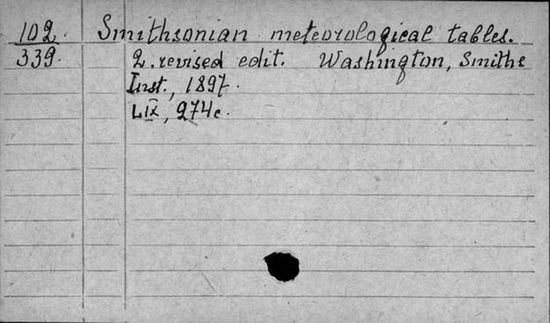 102. Smithsonian meteorological tables.
339. 2. revised edit. Washington, Smiths
Inst., 1897.
LIX, 274c.